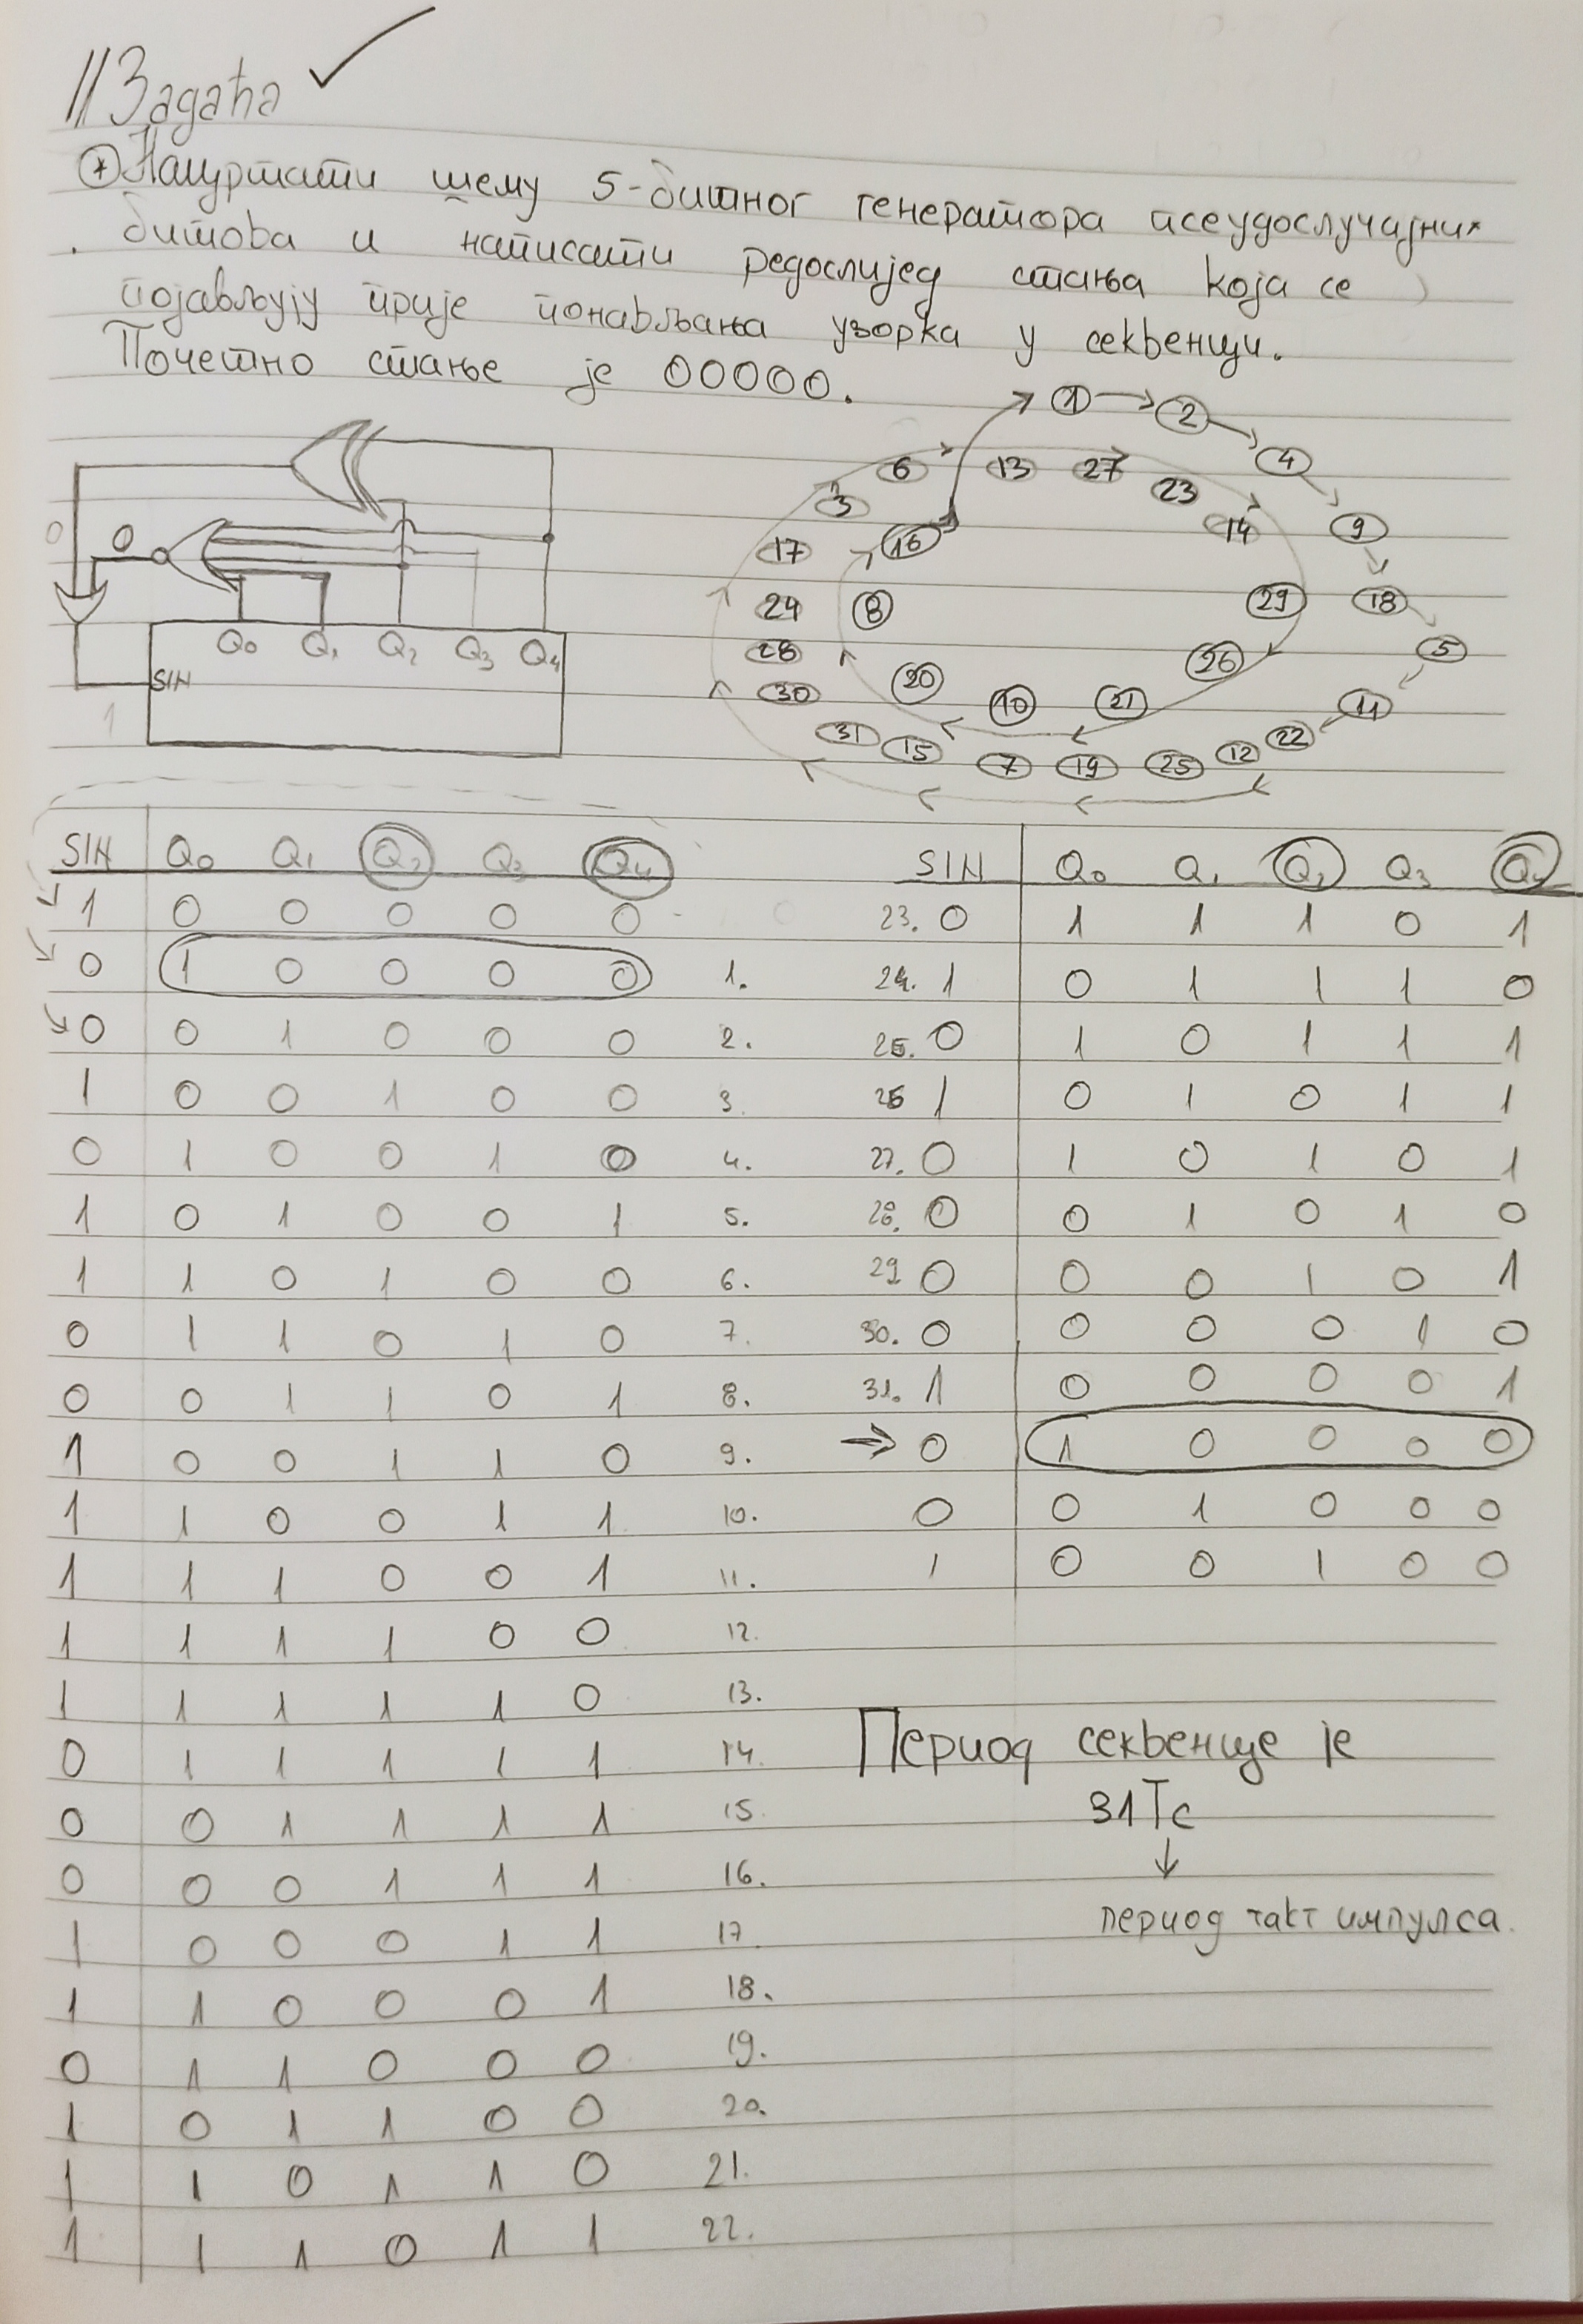 // Задаћа ✓
* Нацртати шему 5-битног генератора псеудослучајних
битова и написати редослијед стања која се
појављују прије понављања узорка у секвенци.
Почетно стање је 00000.
0 0
Q0 Q1 Q2 Q3 Q4
SIN
1
1 2 4 9 18 5 11 22 12 25 19 7 15 31 30 28 24 17 3 6 13 27 23 14 29 26 21 10 20 8 16
SIN Q0 Q1 Q2 Q3 Q4
1 0 0 0 0 0
0 1 0 0 0 0 1.
0 0 1 0 0 0 2.
1 0 0 1 0 0 3.
0 1 0 0 1 0 4.
1 0 1 0 0 1 5.
1 1 0 1 0 0 6.
0 1 1 0 1 0 7.
0 0 1 1 0 1 8.
1 0 0 1 1 0 9.
1 1 0 0 1 1 10.
1 1 1 0 0 1 11.
1 1 1 1 0 0 12.
1 1 1 1 1 0 13.
0 1 1 1 1 1 14.
0 0 1 1 1 1 15.
0 0 0 1 1 1 16.
1 0 0 0 1 1 17.
1 1 0 0 0 1 18.
0 1 1 0 0 0 19.
1 0 1 1 0 0 20.
1 1 0 1 1 0 21.
1 1 1 0 1 1 22.
SIN Q0 Q1 Q2 Q3 Q4
23. 0 1 1 1 0 1
24. 1 0 1 1 1 0
25. 0 1 0 1 1 1
26 1 0 1 0 1 1
27. 0 1 0 1 0 1
28. 0 0 1 0 1 0
29 0 0 0 1 0 1
30. 0 0 0 0 1 0
31. 1 0 0 0 0 1
→ 0 1 0 0 0 0
0 0 1 0 0 0
1 0 0 1 0 0
Период секвенце је
31Tc
↓
период такт импулса.